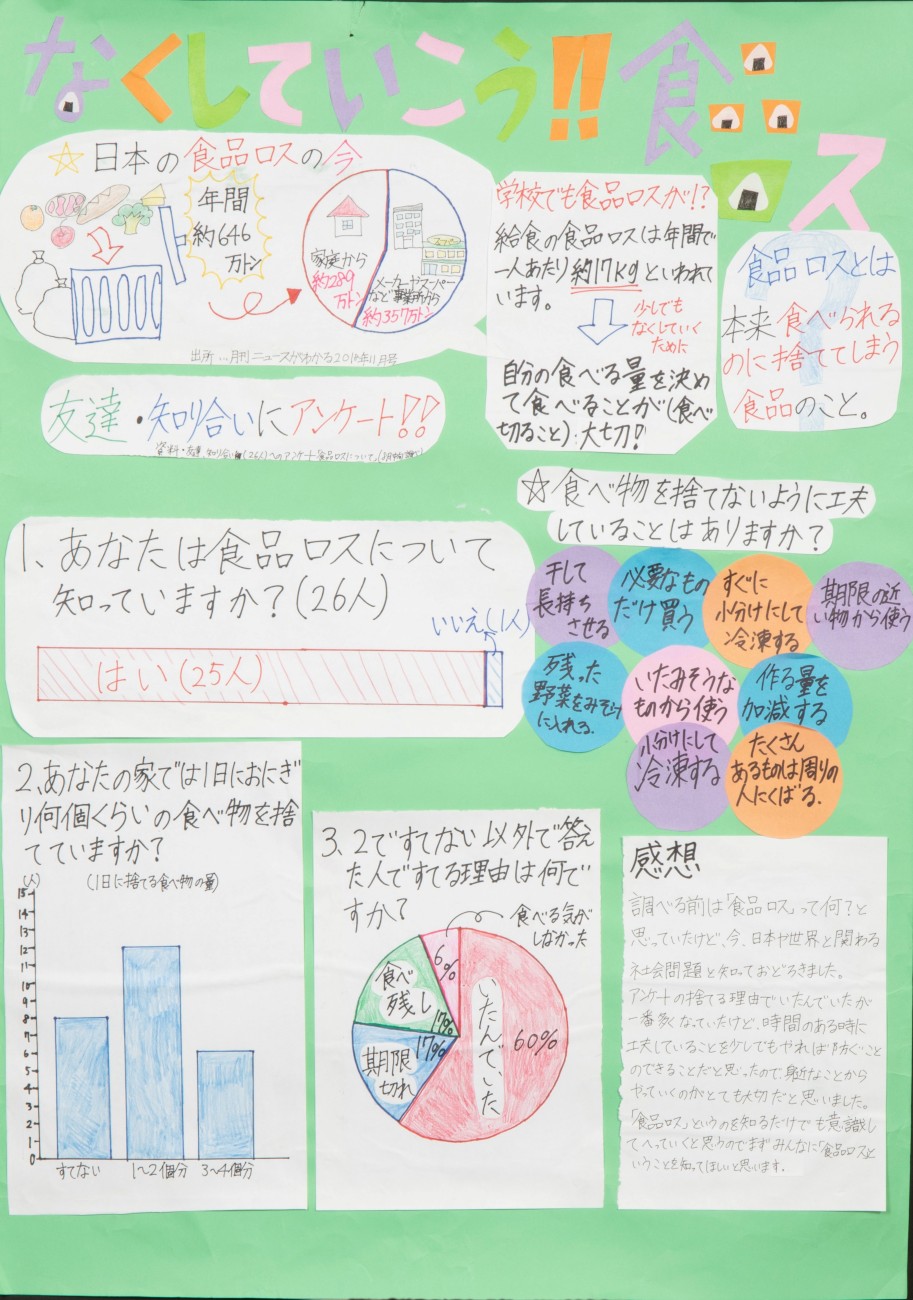 なくしていこう!!食品
ロス
☆日本の食品ロスの今
年間
約646
万トン
家庭から
約289
万トン
メーカーやスーパー
など事業所から
約357万トン
出所…月刊ニュースがわかる2019年11月号
学校でも食品ロスが!?
給食の食品ロスは年間で
一人あたり約17kgといわれて
います。
少しでも
なくしていく
ために
自分の食べる量を決め
て食べることが(食べ
切ること):大切!!
食品ロスとは
本来食べられる
のに捨ててしまう
食品のこと。
友達・知り合いにアンケート!!
☆食べ物を捨てないように工夫
していることはありますか?
干して
長持ち
させる
必要なもの
だけ買う
すぐに
小分けにして
冷凍する
期限の近
い物から使う
残った
野菜をみそ汁
に入れる.
いたみそうな
ものから使う
作る量を
加減する
小分けにして
冷凍する
たくさん
あるものは周りの
人にくばる.
1、あなたは食品ロスについて
知っていますか?(26人)
いいえ(1人)
はい(25人)
2、あなたの家では1日におにぎ
り何個くらいの食べ物を捨
てていますか?
(人)
(1日に捨てる食べ物の量)
15
14
13
12
11
10
9
8
7
6
5
4
3
2
1
0
すてない
1~2個分
3~4個分
3、2ですてない以外で答え
た人ですてる理由は何で
すか?
食べる気が
しなかった
6%
食べ
残し
17%
17%
期限
切れ
いたんでいた
60%
感想
調べる前は「食品ロス」って何?と
思っていたけど、今、日本や世界と関わる
社会問題と知っておどろきました。
アンケートの捨てる理由でいたんでいたが
一番多くなっていたけど、時間のある時に
工夫していることを少しでもやれば防ぐこと
のできることだと思ったので、身近なことから
やっていくのがとても大切だと思いました。
「食品ロス」というのを知るだけでも意識し
てへっていくと思うのでまずみんなに「食品ロス」と
いうことを知ってほしいと思います.